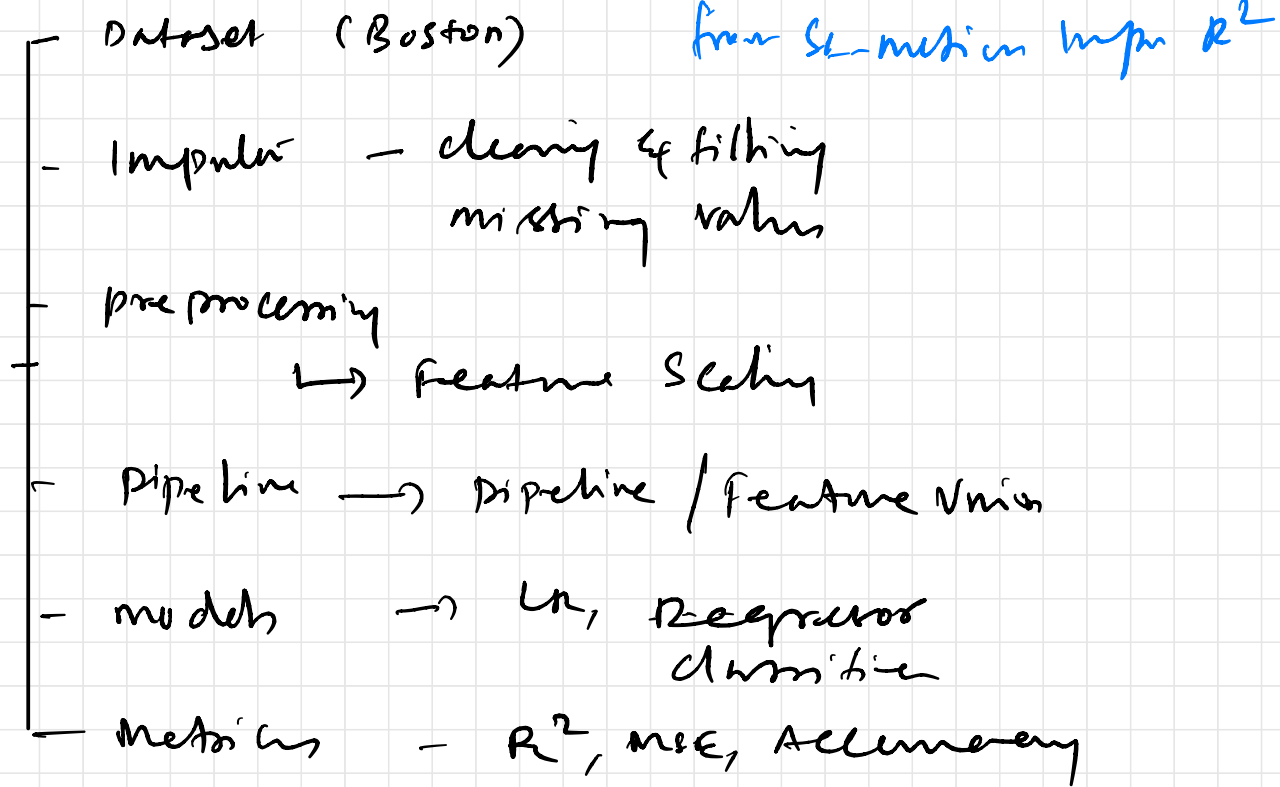 Dataset (Boston) from sk_metrics import R²
Imputer - cleaning & filling
missing values
preprocessing
↳ Feature Scaling
Pipeline → Pipeline / Feature Union
models → LR, Regressor
classifier
Metrics - R², MSE, Accuracy